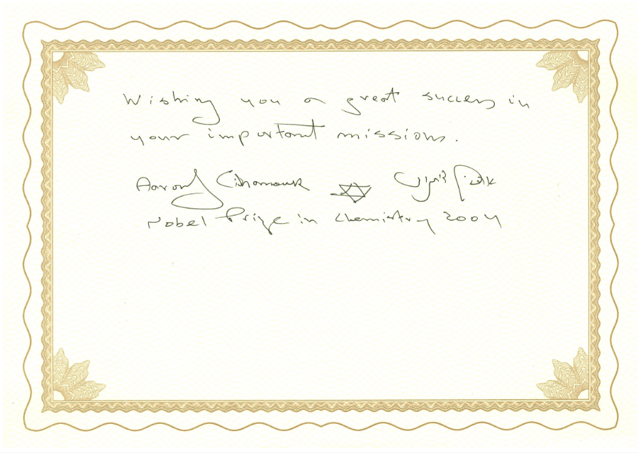 Wishing you a great success in
your important missions.
Aaron J Ciechanover אהרן צ'חנובר
Nobel Prize in Chemistry 2004